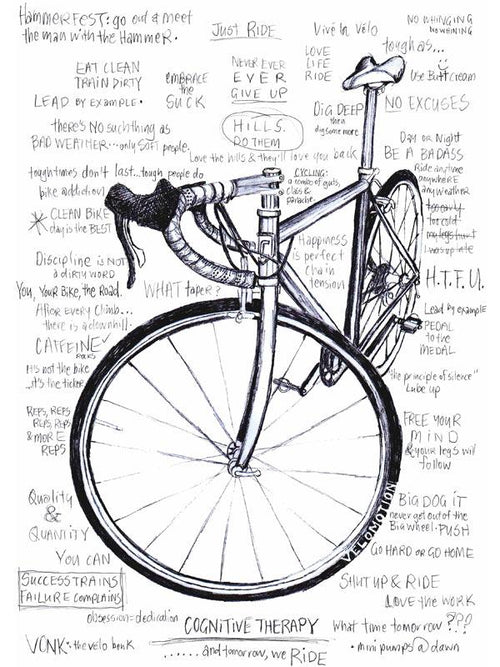 HammerFEST: go out & meet
the man with the HammeR.
Just RIDE
Vive le Vélo
NO WHINGING
NO WHINING
EAT CLEAN
TRAIN DIRTY
EMBRACE
the
SUCK
NEVER EVER
EVER
GIVE UP
LOVE
LIFE
RIDE
toughas...
Use Butt Cream
LEAD by EXAMPLE.
DiG DEEP
then
dig some more
NO EXCUSES
there's NO such thing as
BAD WEATHER...only SOFT people.
HILLS.
DO THEM
Love the hills & they'll love you back
Day or Night
BE A BADASS
toughtimes don't last...tough people do
bike addiction
CYCLING:
a combo of guts,
class &
panache.
Ride anytime
anywhere
any weather
too early
too cold
my legs hurt
I was up late
CLEAN BIKE
day is the BEST
Happiness
is perfect
chain
tension
Discipline is NOT
a DIRTY WORD
H.T.F.U.
You, Your Bike, the Road.
WHAT taper?
After EVERY Climb...
there is a downhill.
Lead by example
PEDAL
to the
MEDAL
CAFFEINE
ROCKS
It's not the bike
...it's the ticker
the principle of silence"
Lube up
REPS, REPS
REPS, REPS
& more
REPS
FREE YOUR
MIND
& your legs will
follow
Quality
&
QUANTITY
BIG DOG it
never get out of the
Big wheel. PUSH
VELOMOTION
YOU CAN
GO HARD or GO HOME
SUCCESS TRAINS
FAILURE COMPLAINS
SHUT UP & RIDE
LOVE the WORK
obsession=dedication
COGNITIVE THERAPY
what time tomorrow ???
VONK: the velo bonk
...... and tomorrow, we RIDE
• mini pumps @ dawn